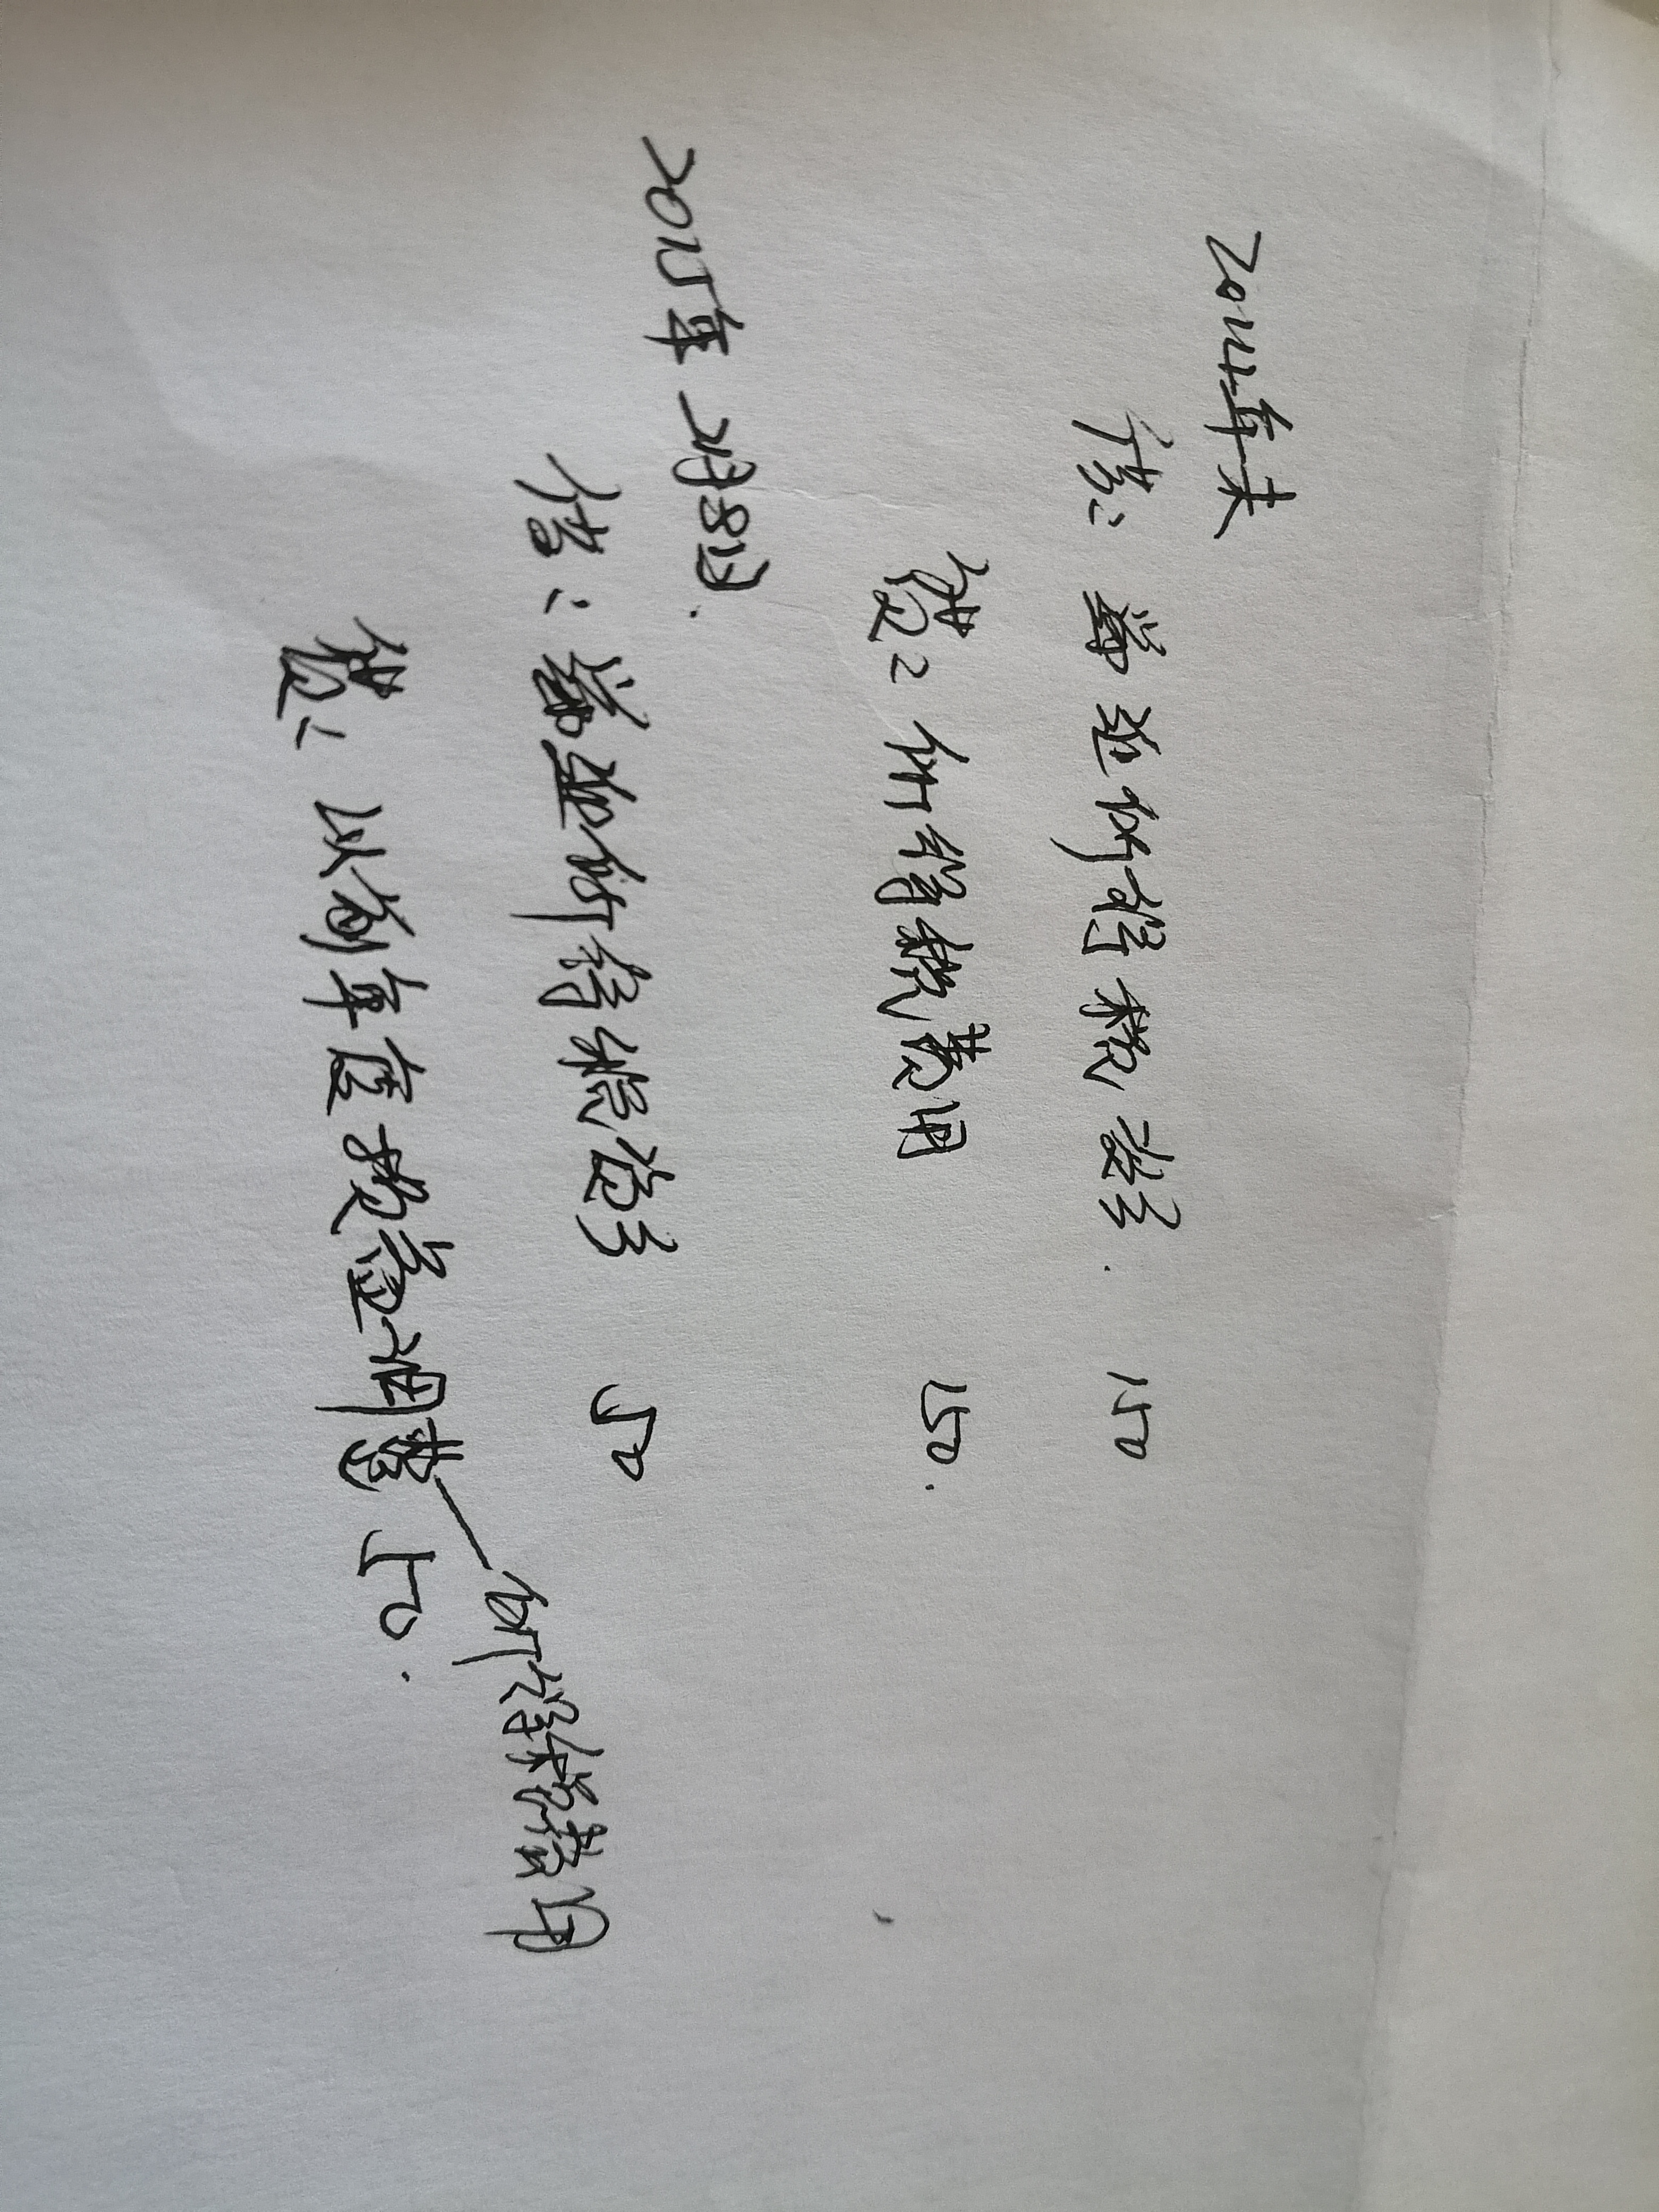 2024年末
借: 递延所得税资产. 150
贷: 所得税费用 150.
2025年2月8日.
借: 递延所得税资产 50
贷: 以前年度损益调整 50.
所得税费用